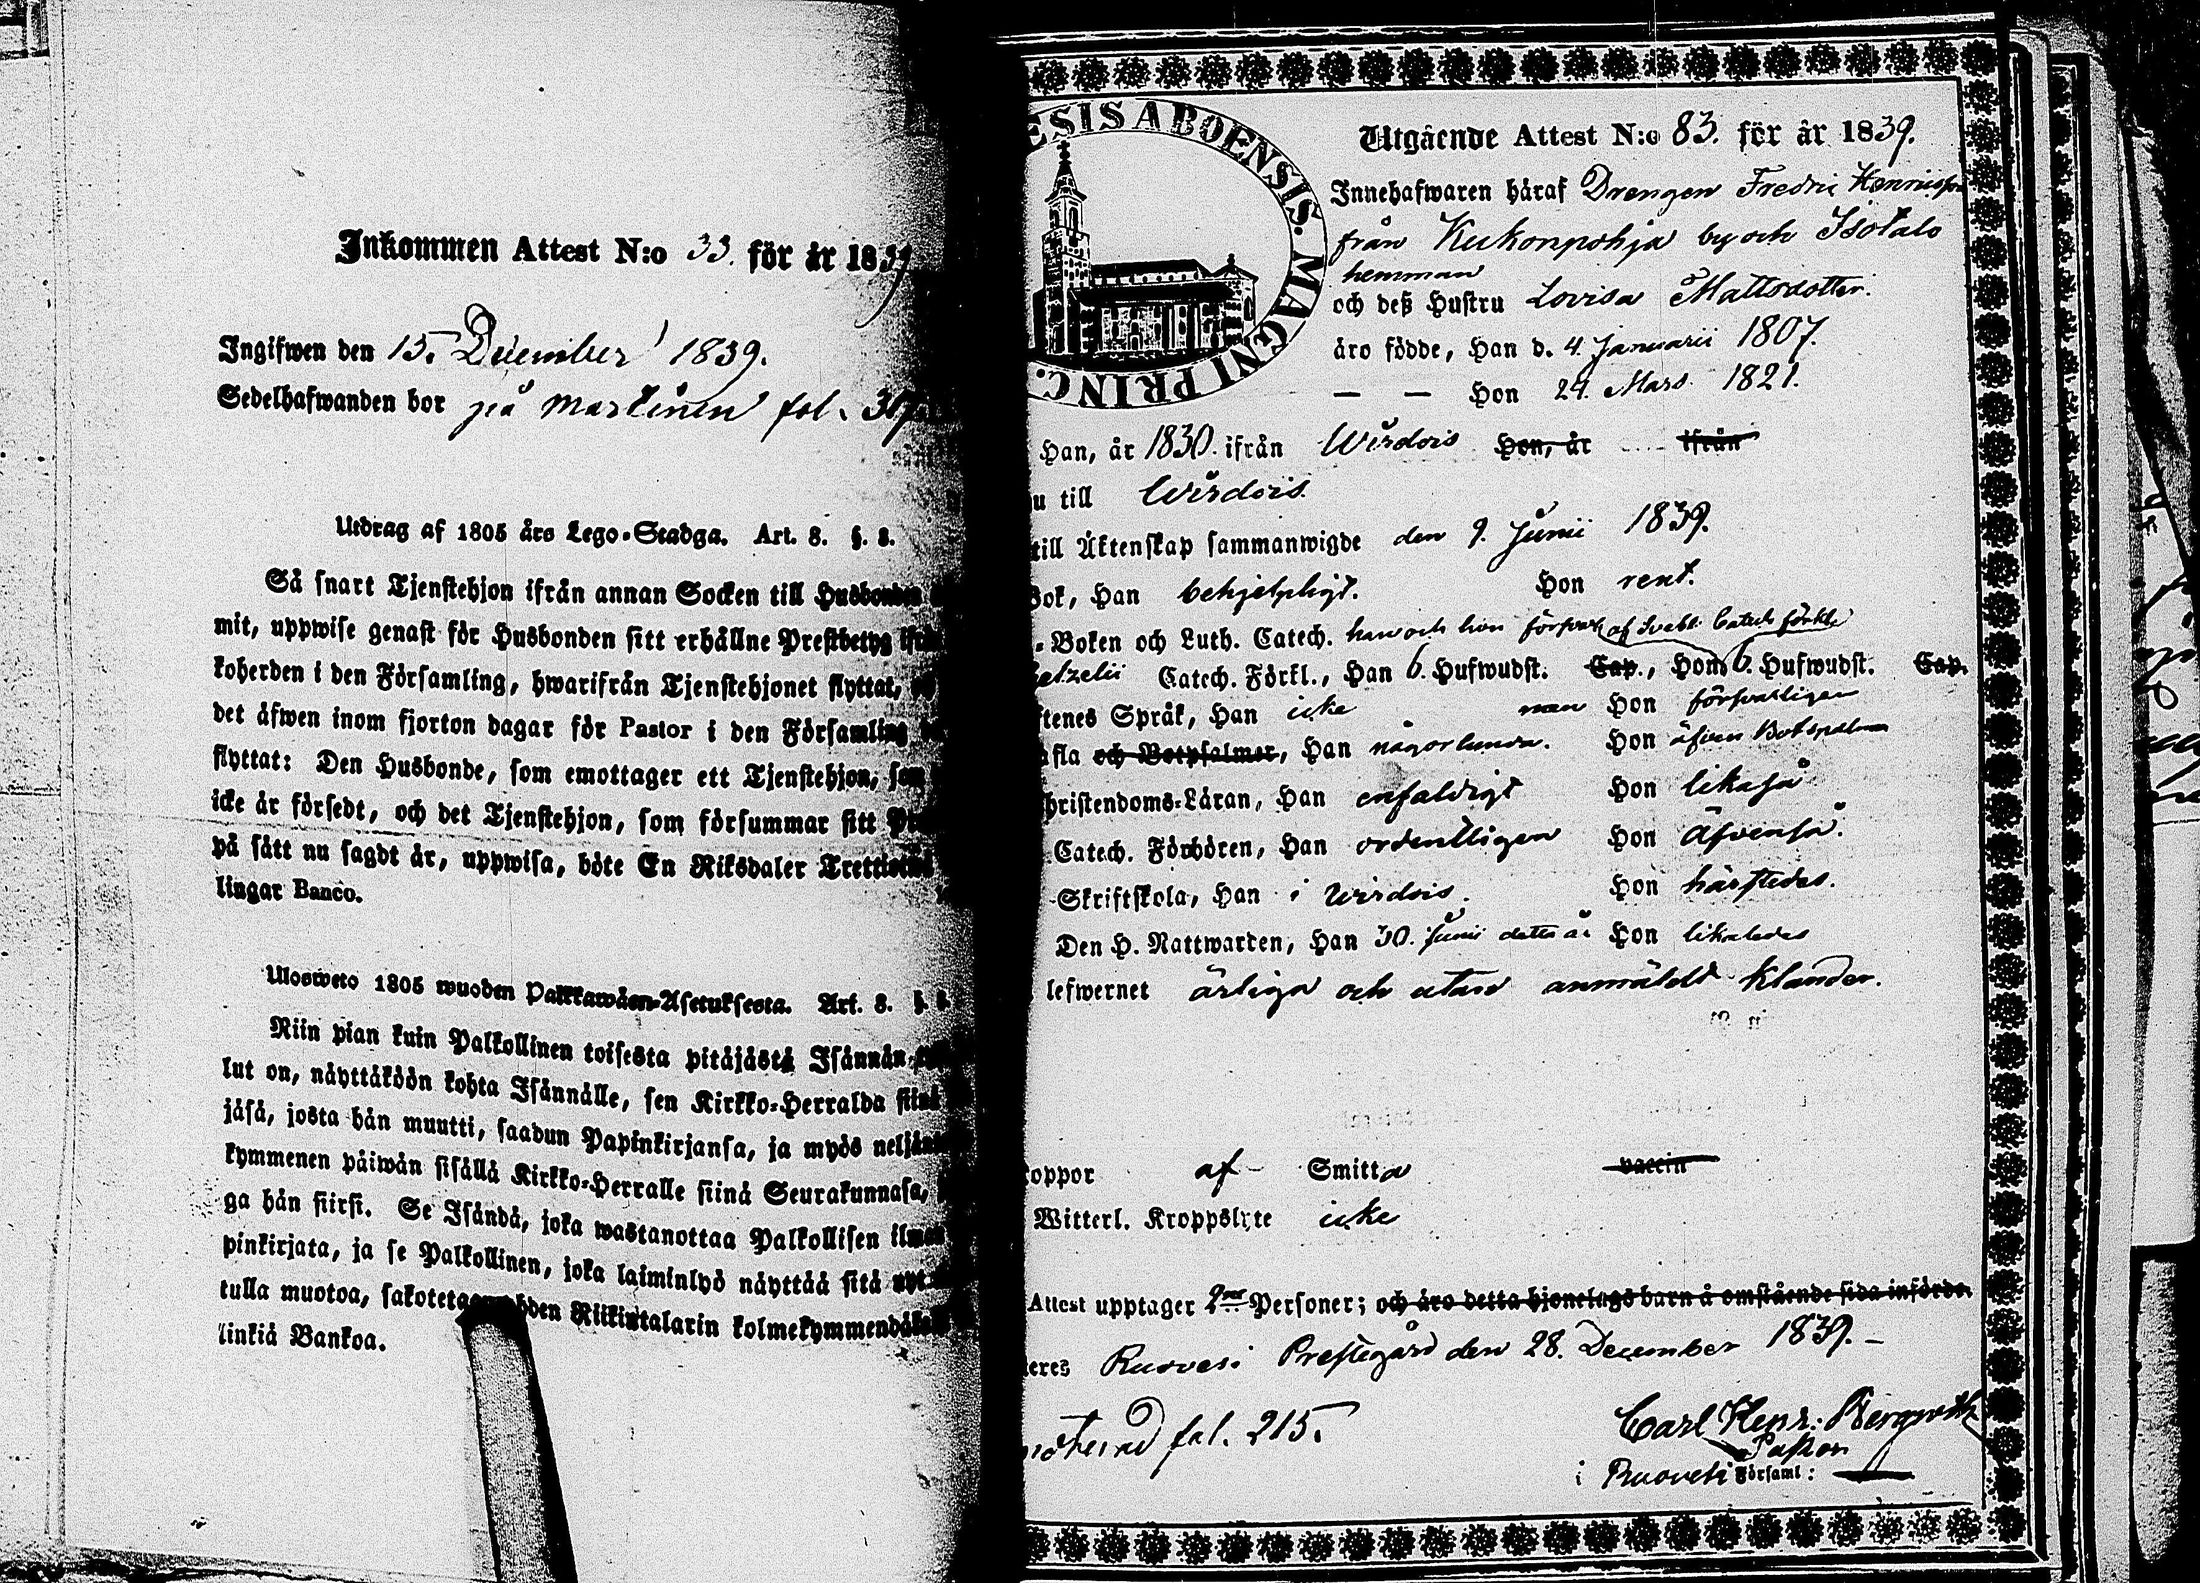 Inkommen Attest N:o 33. för år 1839
Ingifwen den 15. December 1839.
Sedelhafwanden bor på Martinen fol. 317
Utdrag af 1805 års Lego-Stadga. Art. 8. §. 8.
Så snart Tjenstehjon ifrån annan Socken till Husbonden
mit, uppwise genast för Husbonden sitt erhållne Prestbetyg
koherden i den Församling, hwarifrån Tjenstehjonet flyttat,
det äfwen inom fjorton dagar för Pastor i den Församling
flyttat: Den Husbonde, som emottager ett Tjenstehjon, som
icke är försedt, och det Tjenstehjon, som försummar sitt
på sätt nu sagdt är, uppwisa, böte En Riksdaler
lingar Banco.
Ulosweto 1805 wuoden Palkkawäen-Asetuksesta. Art. 8. §. 8.
Niin pian kuin Palkollinen toisesta pitäjästä Isännän
lut on, näyttäköön kohta Isännälle, sen Kirkko-Herralda siinä
jäsä, josta hän muutti, saadun Papinkirjansa, ja myös
kymmenen päiwän sisällä Kirkko-Herralle siinä Seurakunnasa,
ga hän siirsi. Se Isändä, joka wastanottaa Palkollisen ilman
pinkirjata, ja se Palkollinen, joka laiminlyö näyttää sitä
tulla muotoa, Riikintalarin
linkiä Bankoa.
ESIS ABOENSIS. MAGNI PRINC.
Utgående Attest N:o 83. för år 1839.
Innehafwaren häraf Drengen Fredric
från Kukonpohja by och Isotalo
hemman
och deß Hustru Lovisa Mattsdotter.
äro födde, Han d. 4. Januarii 1807.
— — Hon 24. Mars 1821.
Han, år 1830. ifrån Wirdois Hon, år ifrån
u till Wirdois
till Äktenskap sammanwigde den 9. Junii 1839.
Bok, Han behjelpligt. Hon rent.
-Boken och Luth. Catech. han och hon af Catech
etzelii Catech. Förkl., Han 6. Hufwudst. Cap., Hon 6. Hufwudst. Cap.
ftenes Språk, Han icke men Hon
afla och Botpsalmer, Han någorlunda. Hon äfven Botpsalm
hristendoms-Läran, Han enfaldigt Hon likaså
Catech. Förhören, Han ordentligen Hon äfvenså.
Skriftskola, Han i Wirdois. Hon härstedes.
Den H. Nattwarden, Han 30. Junii detta år Hon likaledes
lefwernet ärliga och utan anmäldt klander.
koppor af Smitta vaccin
Witterl. Kroppslyte icke
Attest upptager 2ne Personer; och äro detta hjonelags barn å omstående sida införde.
teres Ruovesi Prestegård den 28. December 1839.
fol. 215.
Carl Henr: Bergroth
Pastor
i Ruovesi Församl: